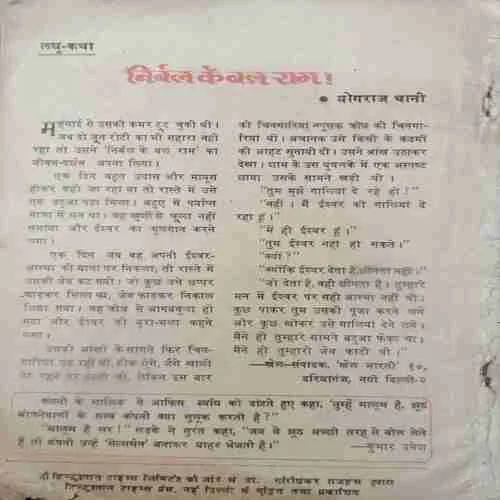 लघु-कथा
निर्बल के बल राम!
● योगराज थानी
महंगाई से उसकी कमर टूट चुकी थी।
जब दो जून रोटी का भी सहारा नहीं
रहा तो उसने 'निर्बल के बल राम' का
जीवन-दर्शन अपना लिया।
एक दिन बहुत उदास और मायूस
होकर कहीं जा रहा था तो रास्ते में उसे
एक बटुआ पड़ा मिला। बटुए में पर्याप्त
मात्रा में धन था। वह खुशी से फूला नहीं
समाया और ईश्वर का गुणगान करने
लगा।
एक दिन जब वह अपनी ईश्वर-
आस्था की यात्रा पर निकला, तो रास्ते में
उसकी जेब कट गयी। जो कुछ उसे छप्पर
फाड़कर मिला था, जेब फाड़कर निकाल
लिया गया। वह क्रोध से आगबबूला हो
गया और ईश्वर को बुरा-भला कहने
लगा।
उसकी आंखों के सामने फिर चिन-
गारियां उड़ रही थीं, ठीक ऐसे, जैसे खाली
पेट रहने पर उड़ती थीं, लेकिन इस बार
की चिनगारियां नपुंसक क्रोध की चिनगा-
रियां थीं। अचानक उसे किसी के कदमों
की आहट सुनायी दी। उसने आंख उठाकर
देखा। शाम के उस धुंधलके में एक अस्पष्ट
छाया उसके सामने खड़ी थी।
"तुम मुझे गालियां दे रहे हो?"
"नहीं। मैं ईश्वर को गालियां दे
रहा हूं।"
"मैं ही ईश्वर हूं।"
"तुम ईश्वर नहीं हो सकते।"
"क्यों?"
"क्योंकि ईश्वर देता है, छीनता नहीं।"
"जो देता है, वही छीनता है। तुम्हारे
मन में ईश्वर पर सही आस्था नहीं थी।
कुछ पाकर तुम उसकी पूजा करने लगे
और कुछ खोकर उसे गालियां देने लगे।
मैंने ही तुम्हारे सामने बटुआ फेंका था।
मैंने ही तुम्हारी जेब काटी थी।"
—खेल-संपादक, 'खेल भारती' १०,
दरियागंज, नयी दिल्ली-२
कंपनी के मालिक ने आफिस ब्वॉय को डांटते हुए कहा, "तुम्हें मालूम है, झूठ
बोलनेवालों के साथ कंपनी क्या सुलूक करती है?"
"मालूम है सर!" लड़के ने तुरंत कहा, "जब वे झूठ अच्छी तरह से बोल लेते
हैं तो कंपनी उन्हें 'सेल्समैन' बनाकर बाहर भेजती है।"
—कुमार उमेश
दी हिन्दुस्तान टाइम्स लिमिटेड की ओर से डा. गौरीशंकर राजहंस द्वारा
हिन्दुस्तान टाइम्स प्रेस, नई दिल्ली में मुद्रित तथा प्रकाशित